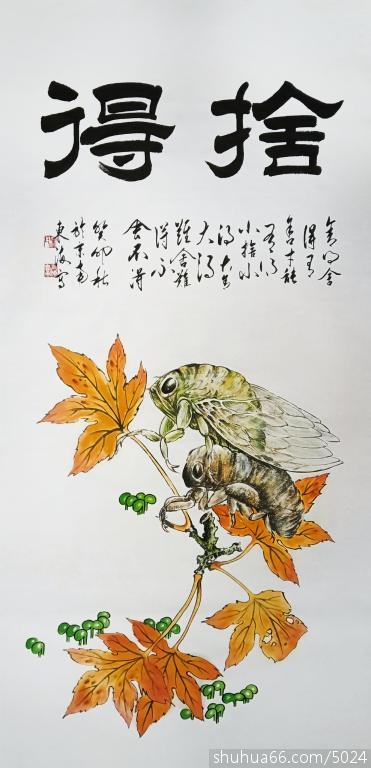 捨得
舍得舍
得有
舍才能
有得
小捨小
得大舍
大得
難舍難
得不
舍不得
癸卯秋
於京南
東海寫
shuhua66.com/5024